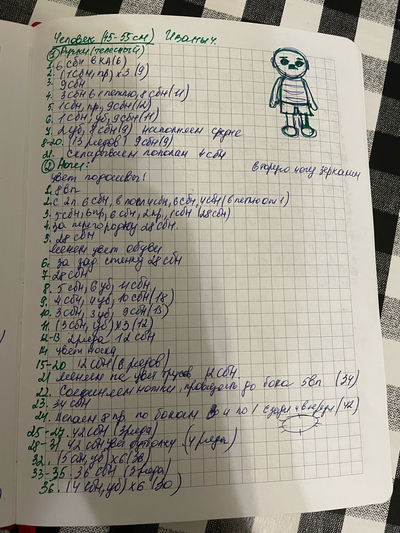 Человек (45-55см) Иваныч.
① Ручки (телесный)
1. 6 сбн в КА (6)
2. (1 сбн, пр) х3 (9)
3. 9 сбн
4. 3 сбн в 1 петлю, 8 сбн (11)
5. 1 сбн, пр, 9 сбн (12)
6. 1 сбн, уб, 9 сбн (11)
7. 2 уб, 7 сбн (9) наполняем
8-20. (13 рядов) 9 сбн (9)
21. Складываем пополам 4 сбн
② Ноги: вторую ногу зеркалим
цвет подошвы!
1. 8 вп
2. с 2п. 6 сбн, в посл 4 сбн, 6 сбн, 4 сбн (в петлю от 1)
3. 5 сбн, 6 пр, 6 сбн, 2 пр, 1 сбн (28 сбн)
4. за перегородку 28 сбн.
5. 28 сбн
меняем цвет обуви
6. за зад. стенку 28 сбн
7. 28 сбн
8. 5 сбн, 6 уб, 11 сбн
9. 4 сбн, 4 уб, 10 сбн (18)
10. 3 сбн, 3 уб, 9 сбн (15)
11. (3 сбн, уб) х3 (12)
12-13 2 ряда 12 сбн
14 цвет носка
15-20 12 сбн (6 рядов)
21 меняем на цвет трусов 12 сбн.
22. Соединяем ножки, провязать до бока 5 вп (34)
23. 34 сбн
24. Делаем 8 пр по бокам и по 1 сзади и впереди (42)
25-27. 42 сбн (3 ряда)
28-31. 42 сбн цвет футболки (4 ряда)
32. (5 сбн, уб) х6 (36)
33-35. 36 сбн (3 ряда)
36. (4 сбн, уб) х6 (30)